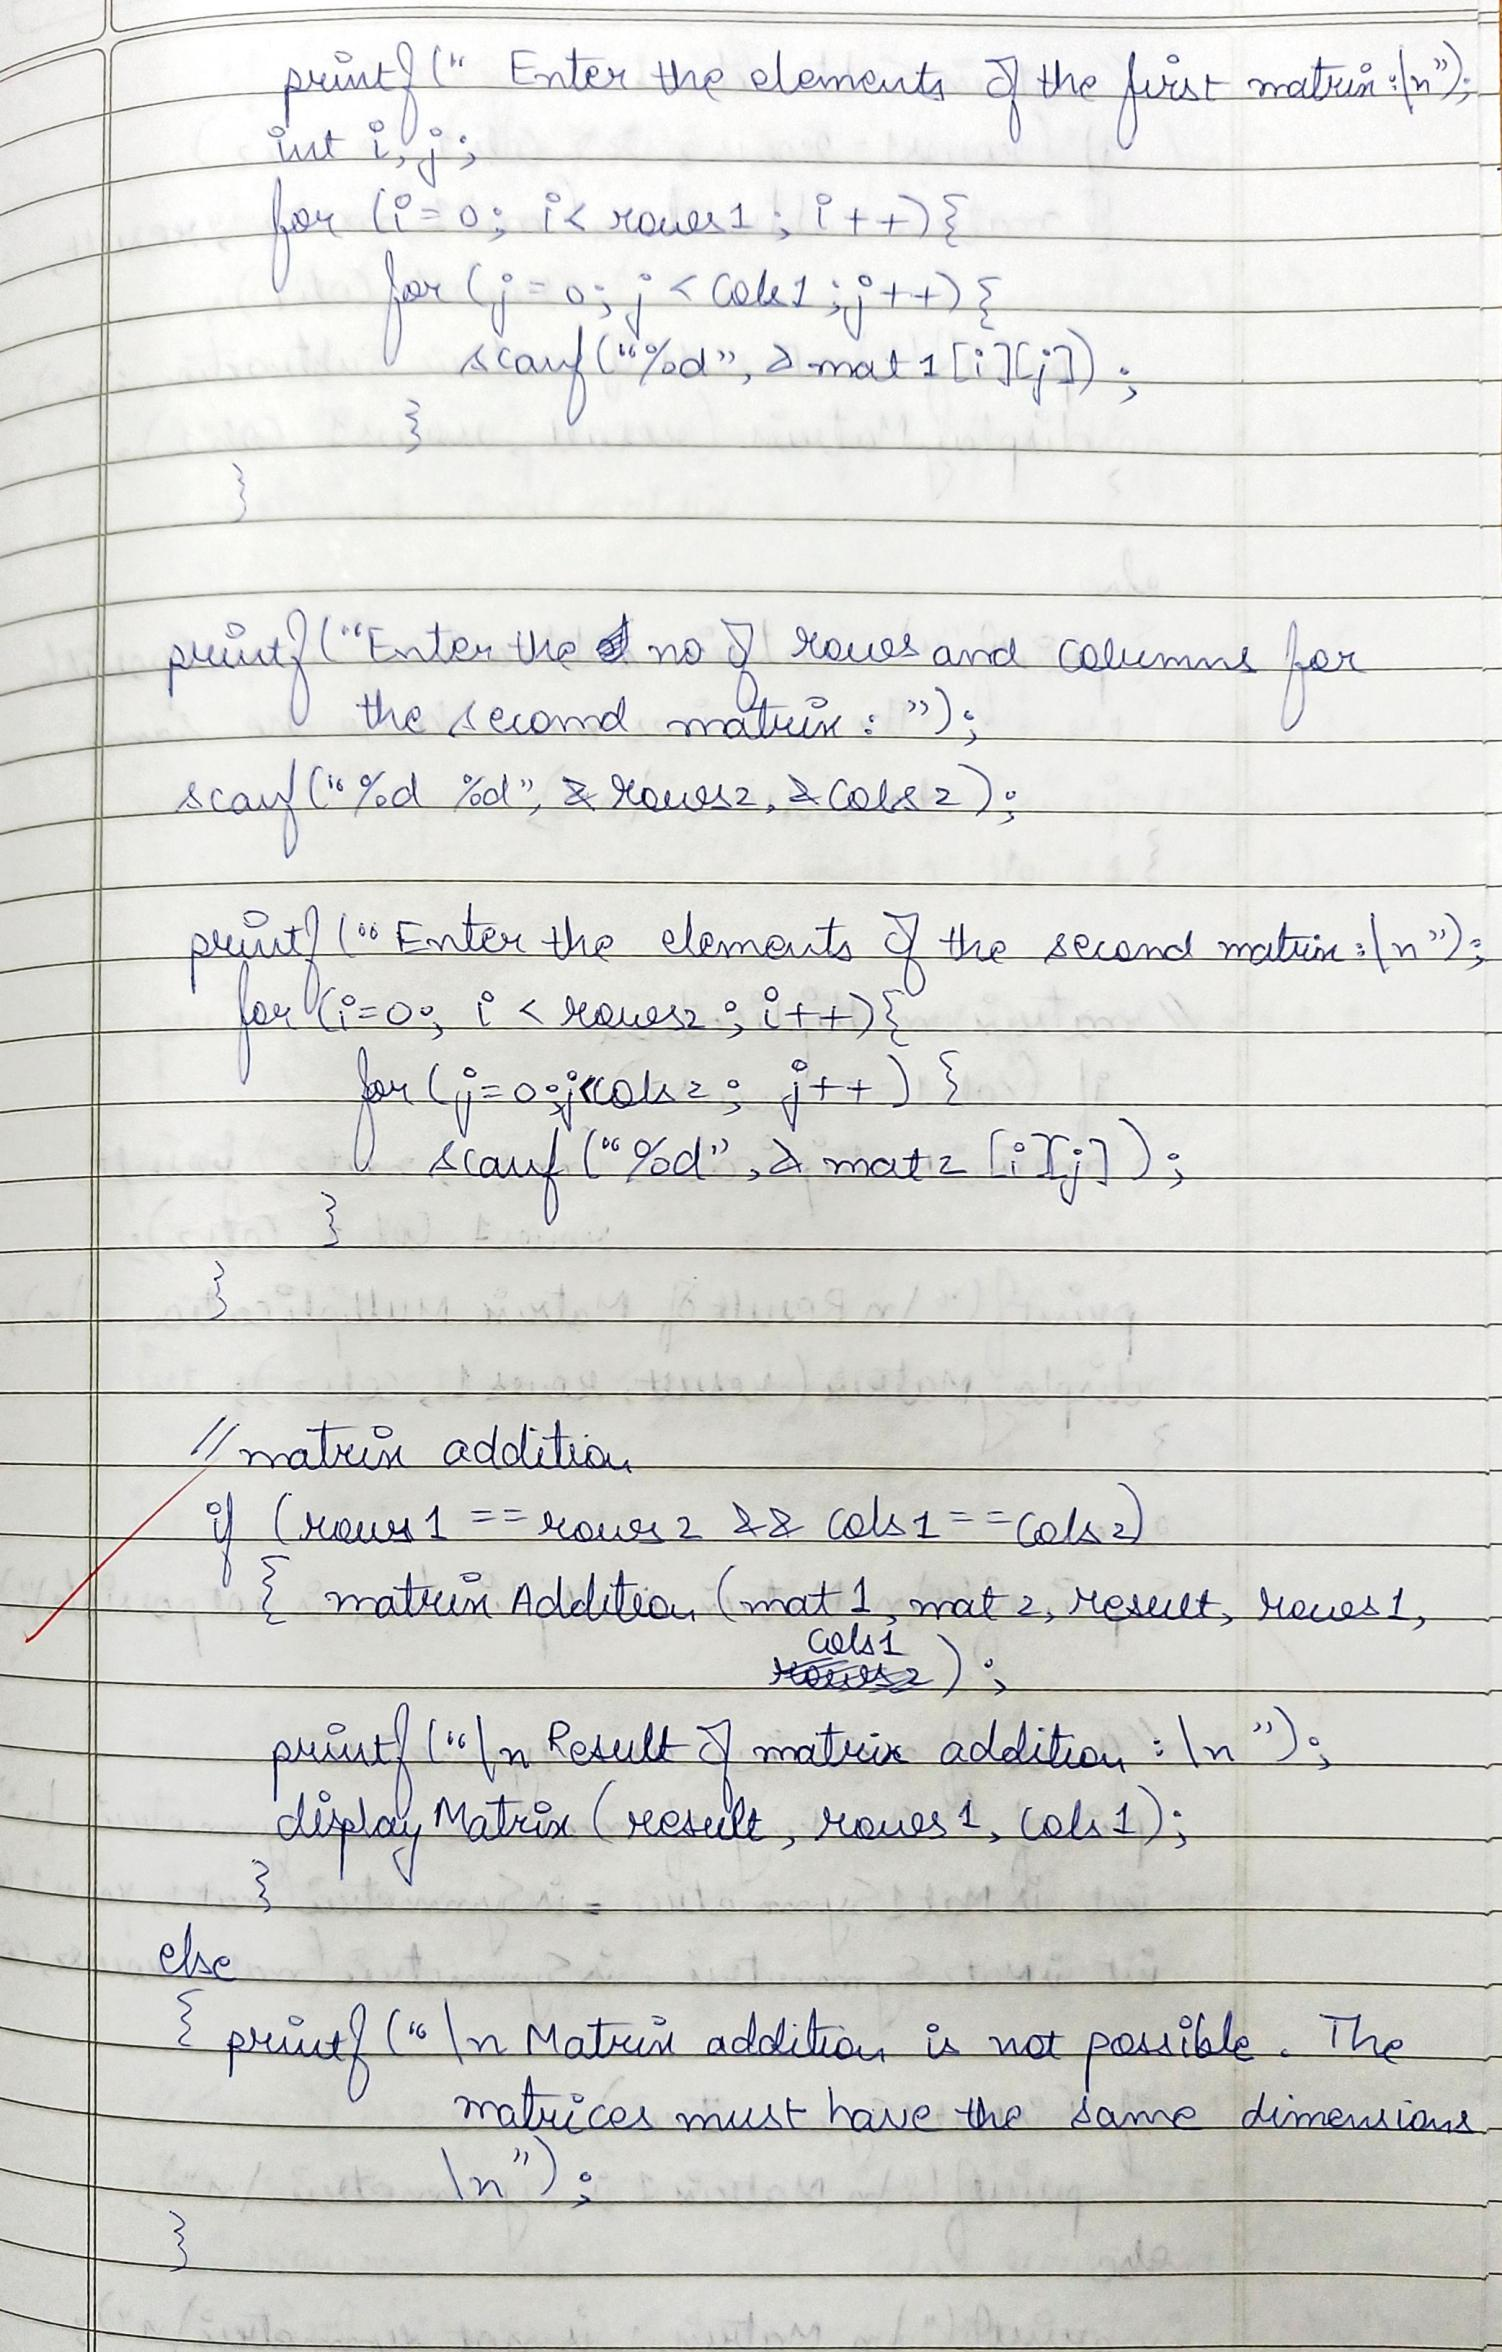 printf(" Enter the elements of the first matrix:\n");
int i, j;
for (i=0; i< rows1; i++){
for (j=0; j < cols1; j++){
scanf("%d", &mat1[i][j]);
}
}
printf("Enter the no of rows and columns for
the second matrix: ");
scanf("%d %d", &rows2, &cols2);
printf("Enter the elements of the second matrix:\n");
for (i=0; i < rows2; i++){
for (j=0; j<cols2; j++) {
scanf("%d", &mat2[i][j]);
}
}
// matrix addition
if (rows1 == rows2 && cols1 == cols2)
{ matrix Addition (mat1, mat2, result, rows1,
cols1
);
printf("\n Result of matrix addition :\n ");
display Matrix (result, rows1, cols1);
}
else
{ printf("\n Matrix addition is not possible. The
matrices must have the same dimensions
\n");
}